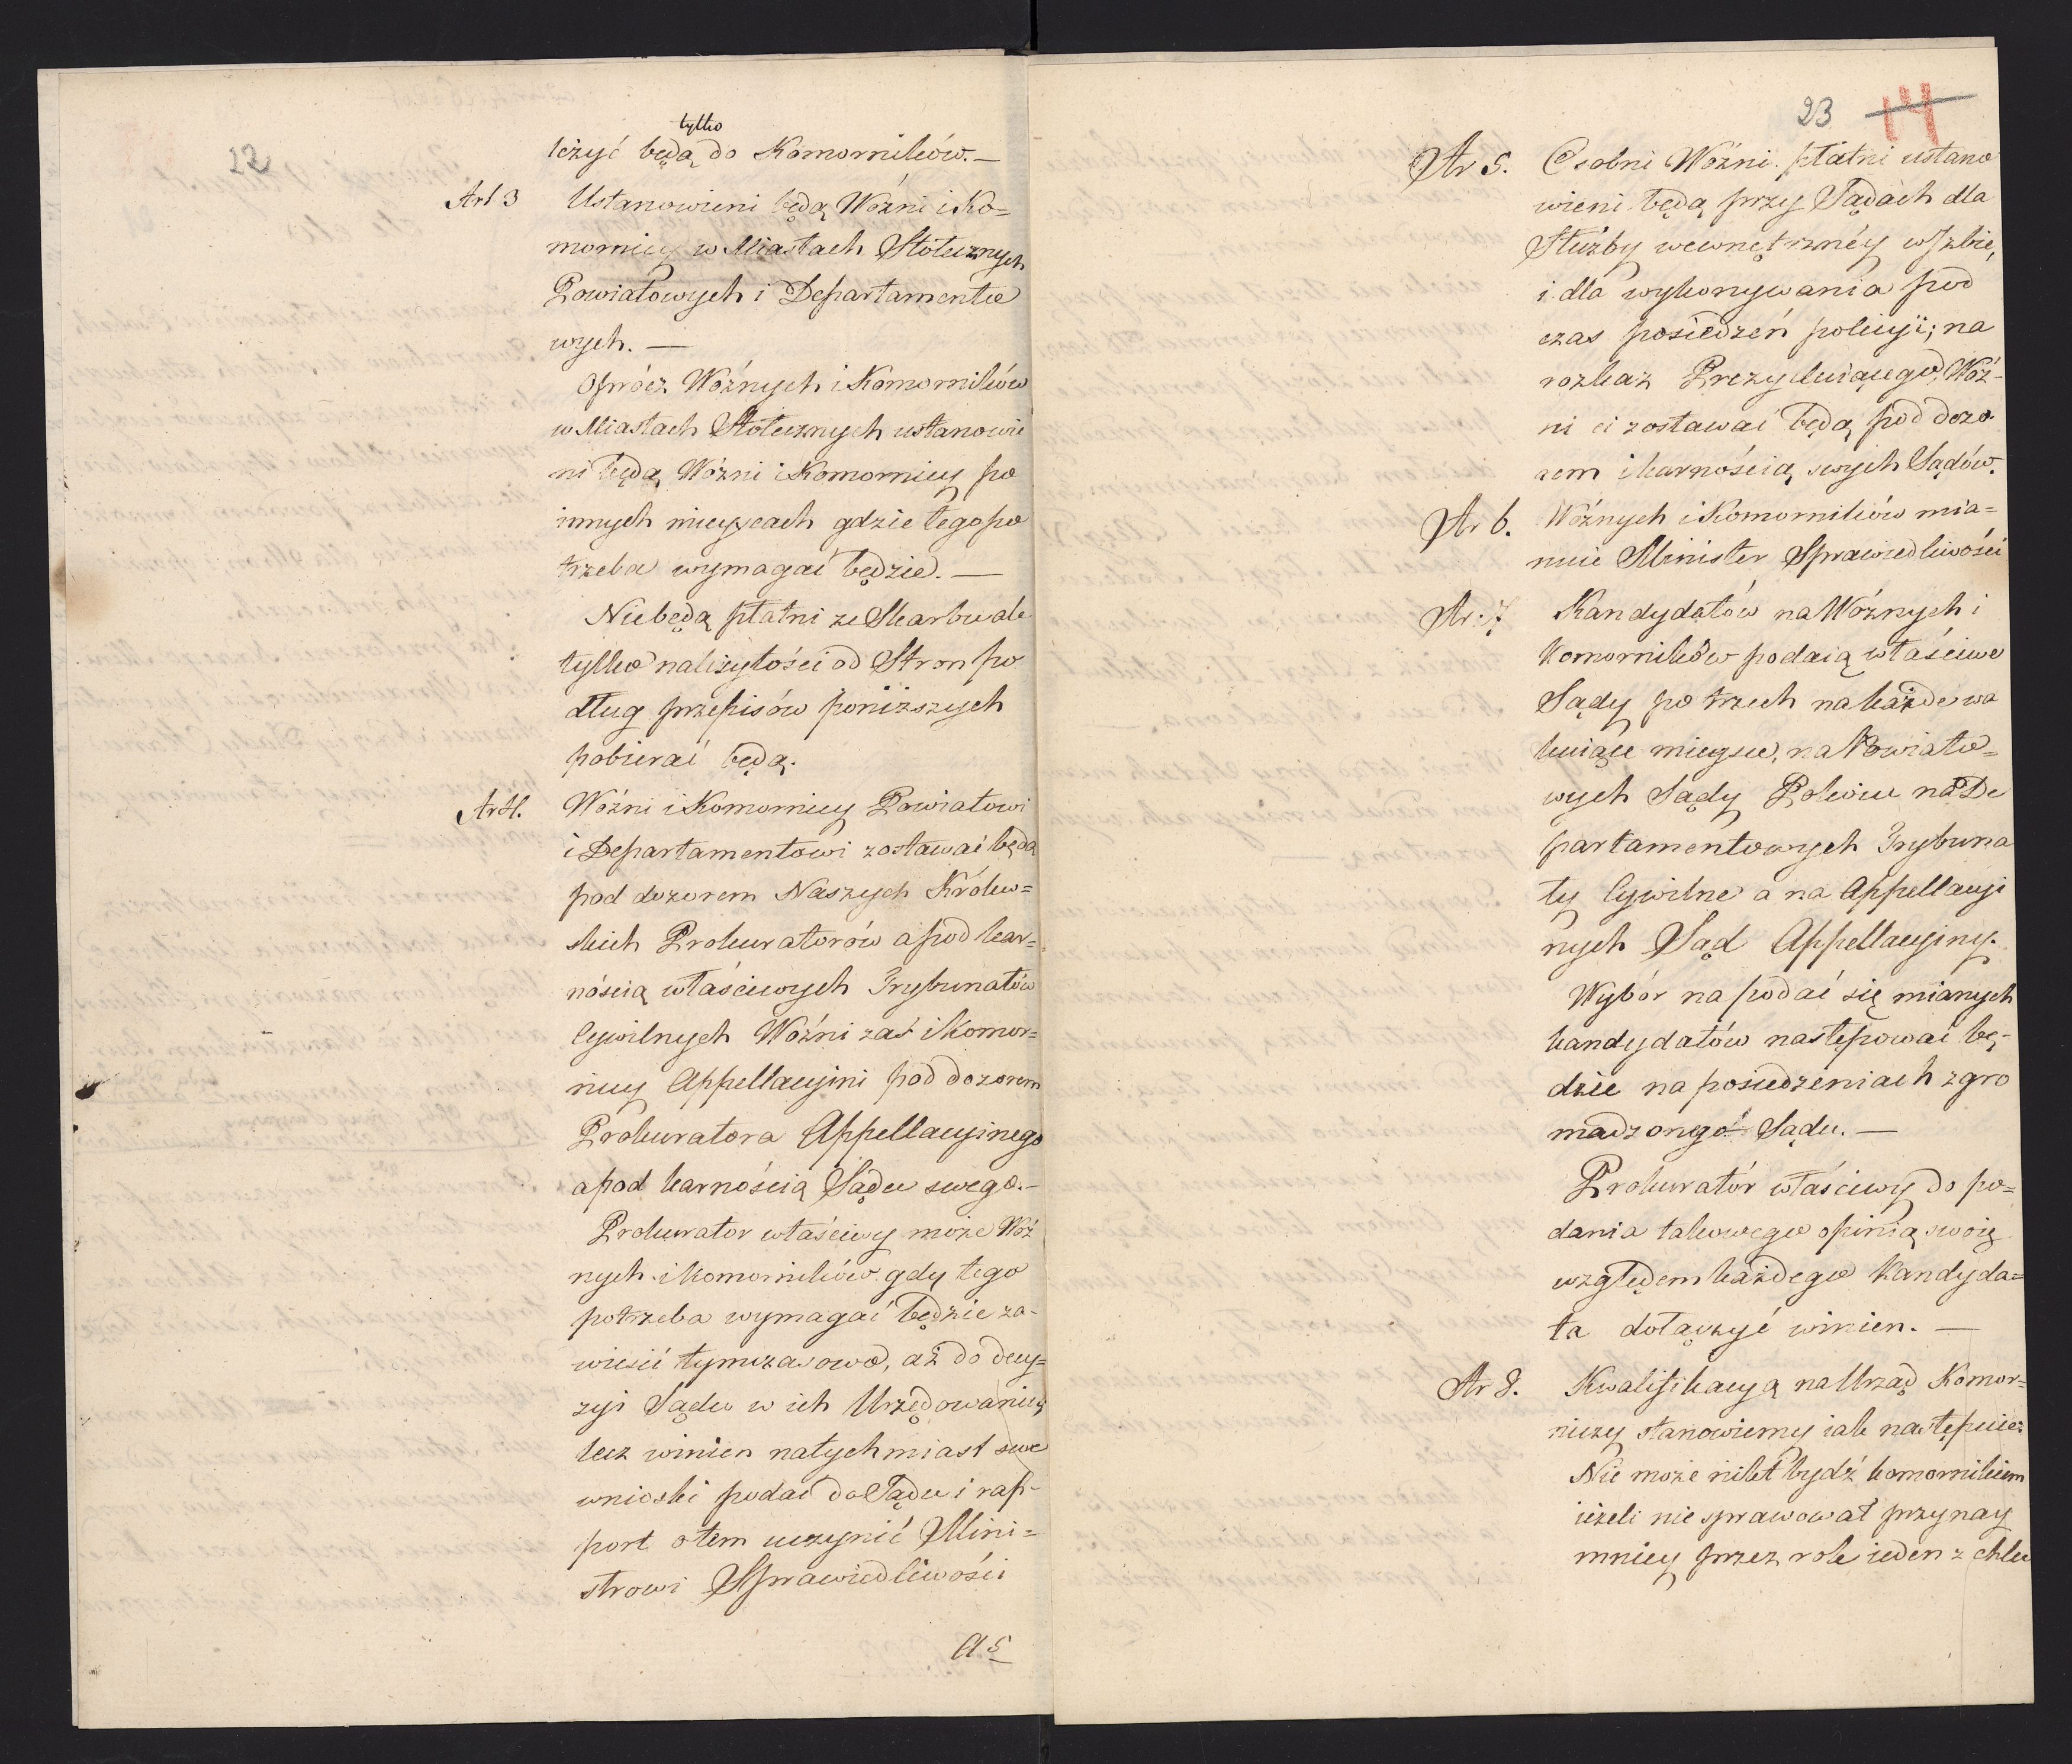 22
tylko
leżyć będą do Komorników. —
Art 3 Ustanowieni będą Woźni i Ko=
mornicy w Miastach Stołecznych
Powiatowych i Departamento
wych. —
Oprócz Woźnych i Komorników
w Miastach Stołecznych ustanowie
ni będą Woźni i Komornicy po
innych mieyscach gdzie tego po
trzeba wymagać będzie. —
Niebędą płatni ze Skarbu ale
tylko należytości od Stron po
dług przepisów poniższych
pobierać będą.
Art 4. Woźni i Komornicy Powiatowi
i Departamentowi zostawać będą
pod dozorem Naszych Królew=
skich Prokuratorów a pod kar=
nością właściwych Trybunałów
Cywilnych Woźni zaś i Komor=
nicy Appellacyini pod dozorem
Prokuratora Appellacyinego
a pod karnością Sądu swego. —
Prokurator właściwy może Woź
nych i Komorników gdy tego
potrzeba wymagać będzie za-
wiesić tymczasowo, aż do decy=
zyi Sądu w ich Urzędowaniu,
lecz winien natychmiast swe
wnioski podać do Sądu i rap-
port o tem uczynić Mini=
strowi Sprawiedliwości
A 5
23 14
Ar 5. Osobni Woźni płatni ustano
wieni będą przy Sądach dla
Służby wewnętrznéy w Izbie,
i dla wykonywania pod
czas posiedzeń policyi; na
rozkaz Prezyduiącego, Woź-
ni ci zostawać będą pod dozo
rem i karnością swych Sądów.
Ar 6. Woźnych i Komorników mia=
nuie Minister Sprawiedliwości
Ar: 7. Kandydatów na Woźnych i
Komorników podaią właściwe
Sądy po trzech na każde wa
kuiące mieysce, na Powiato=
wych Sądy Pokoiu na De
partamentowych Trybuna
ły Cywilne a na Appellacyi
nych Sąd Appellacyiny.
Wybór na podać się mianych
kandydatów następować bę-
dzie na posiedzeniach zgro
madzonego Sądu. —
Prokuratór właściwy do po=
dania takowego opinią swoię
względem każdego Kandyda=
ta dołączyć winien. —
Ar 8. Kwalifikacyą na Urząd Komor=
niczy stanowiemy iak następuie:
Nie może nikt bydź komornikiem
ieżeli nie sprawował przynay
mniey przez rok ieden z chlu